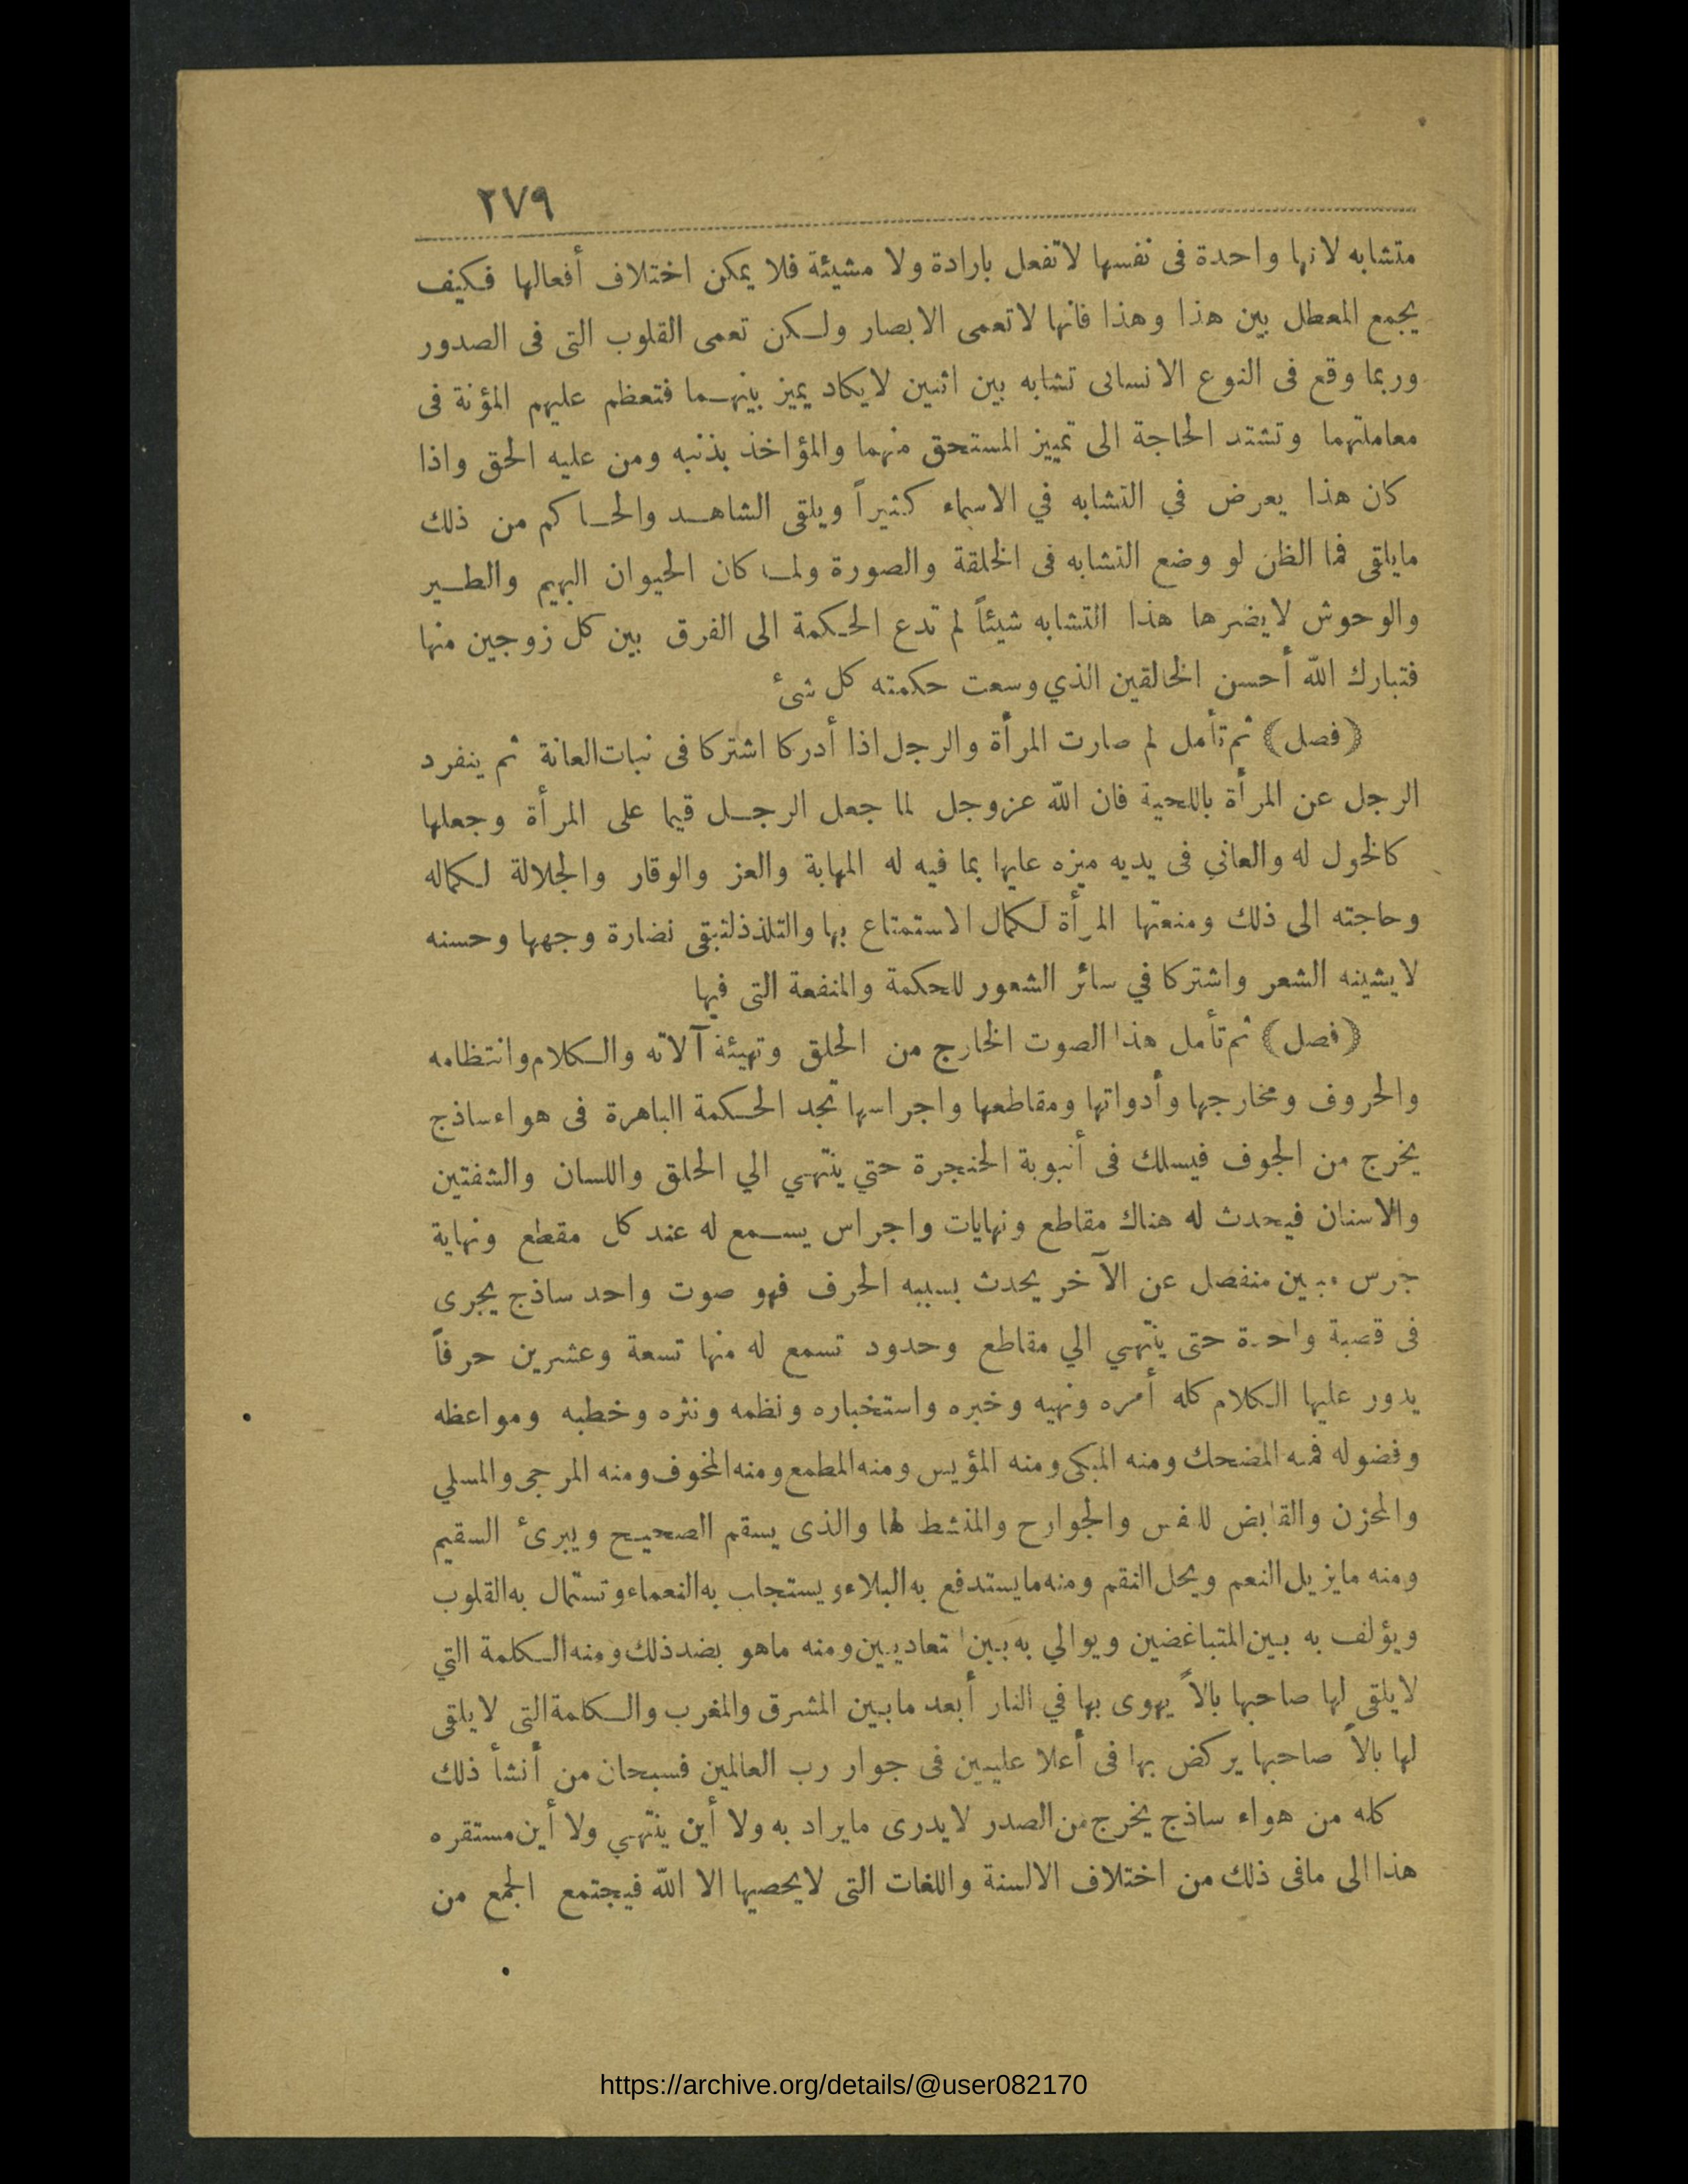 ٢٧٩
متشابه لانها واحدة فى نفسها لاتفعل بارادة ولا مشيئة فلا يمكن اختلاف أفعالها فكيف
يجمع المعطل بين هذا وهذا فانها لاتعمى الابصار ولكن تعمى القلوب التى فى الصدور
وربما وقع فى النوع الانسانى تشابه بين اثنين لايكاد يميز بينهما فتعظم عليهم المؤنة فى
معاملتهما وتشتد الحاجة الى تمييز المستحق منهما والمؤاخذ بذنبه ومن عليه الحق واذا
كان هذا يعرض في التشابه في الاسماء كثيراً ويلقى الشاهد والحاكم من ذلك
مايلقى فما الظن لو وضع التشابه فى الخلقة والصورة ولما كان الحيوان البهيم والطير
والوحوش لايضرها هذا التشابه شيئاً لم تدع الحكمة الى الفرق بين كل زوجين منها
فتبارك الله أحسن الخالقين الذي وسعت حكمته كل شىء
(فصل) ثم تأمل لم صارت المرأة والرجل اذا أدركا اشتركا فى نبات العانة ثم ينفرد
الرجل عن المرأة باللحية فان الله عزوجل لما جعل الرجل قيما على المرأة وجعلها
كالخول له والعاني فى يديه ميزه عليها بما فيه له المهابة والعز والوقار والجلالة لكماله
وحاجته الى ذلك ومنعتها المرأة لكمال الاستمتاع بها والتلذذ لتبقى نضارة وجهها وحسنه
لايشينه الشعر واشتركا في سائر الشعور للحكمة والمنفعة التى فيها
(فصل) ثم تأمل هذا الصوت الخارج من الحلق وتهيئة آلاته والكلام وانتظامه
والحروف ومخارجها وأدواتها ومقاطعها واجراسها تجد الحكمة الباهرة فى هواء ساذج
يخرج من الجوف فيسلك فى أنبوبة الحنجرة حتي ينتهي الي الحلق واللسان والشفتين
والاسنان فيحدث له هناك مقاطع ونهايات واجراس يسمع له عند كل مقطع ونهاية
جرس مبين منفصل عن الآخر يحدث بسببه الحرف فهو صوت واحد ساذج يجرى
فى قصبة واحدة حتى ينتهي الي مقاطع وحدود تسمع له منها تسعة وعشرين حرفاً
يدور عليها الكلام كله أمره ونهيه وخبره واستخباره ونظمه ونثره وخطبه ومواعظه
وفضوله فمنه المضحك ومنه المبكى ومنه المؤيس ومنه المطمع ومنه المخوف ومنه المرجى والمسلي
والمحزن والقابض للنفس والجوارح والمنشط لها والذى يسقم الصحيح ويبرئ السقيم
ومنه مايزيل النعم ويحل النقم ومنه مايستدفع به البلاء ويستجاب به النعماء وتستمال به القلوب
ويؤلف به بين المتباغضين ويوالي به بين المتعاديين ومنه ماهو بضد ذلك ومنه الكلمة التي
لايلقى لها صاحبها بالاً يهوى بها في النار أبعد مابين المشرق والمغرب والكلمة التى لايلقى
لها بالاً صاحبها يركض بها فى أعلا عليين فى جوار رب العالمين فسبحان من أنشأ ذلك
كله من هواء ساذج يخرج من الصدر لايدرى مايراد به ولا أين ينتهي ولا أين مستقره
هذا الى مافى ذلك من اختلاف الالسنة واللغات التى لايحصيها الا الله فيجتمع الجمع من
https://archive.org/details/@user082170